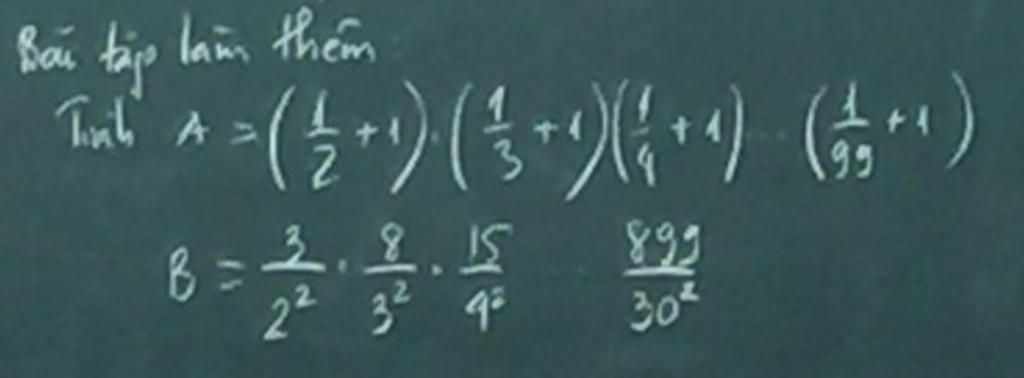 Bài tập làm thêm
Tính A = (1/2 + 1) · (1/3 + 1)(1/4 + 1) ... (1/99 + 1)
B = 3/2² · 8/3² · 15/4² ... 899/30²